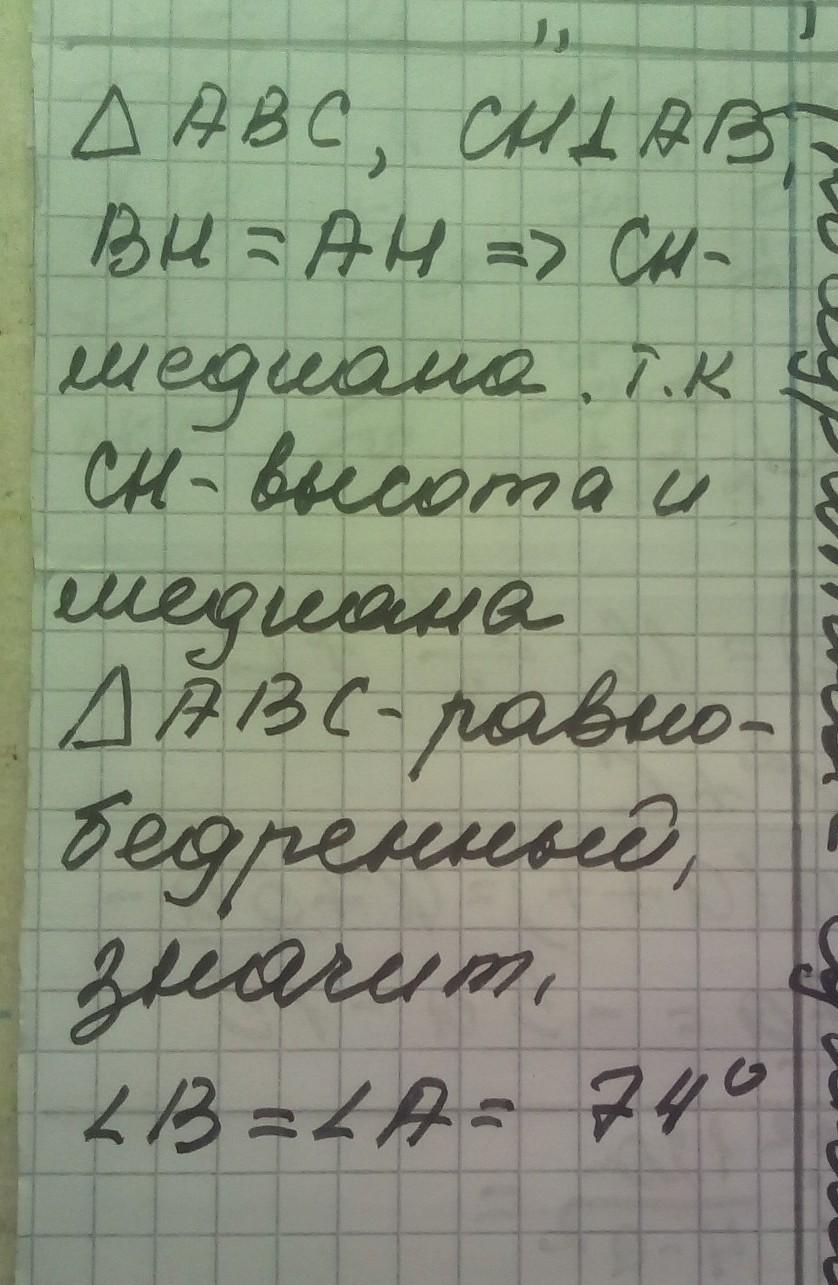 △ ABC, CH⊥AB,
BH = AH => CH-
медиана. т.к
CH- высота и
медиана
△ ABC- равно-
бедренный,
значит,
∠B = ∠A = 74°